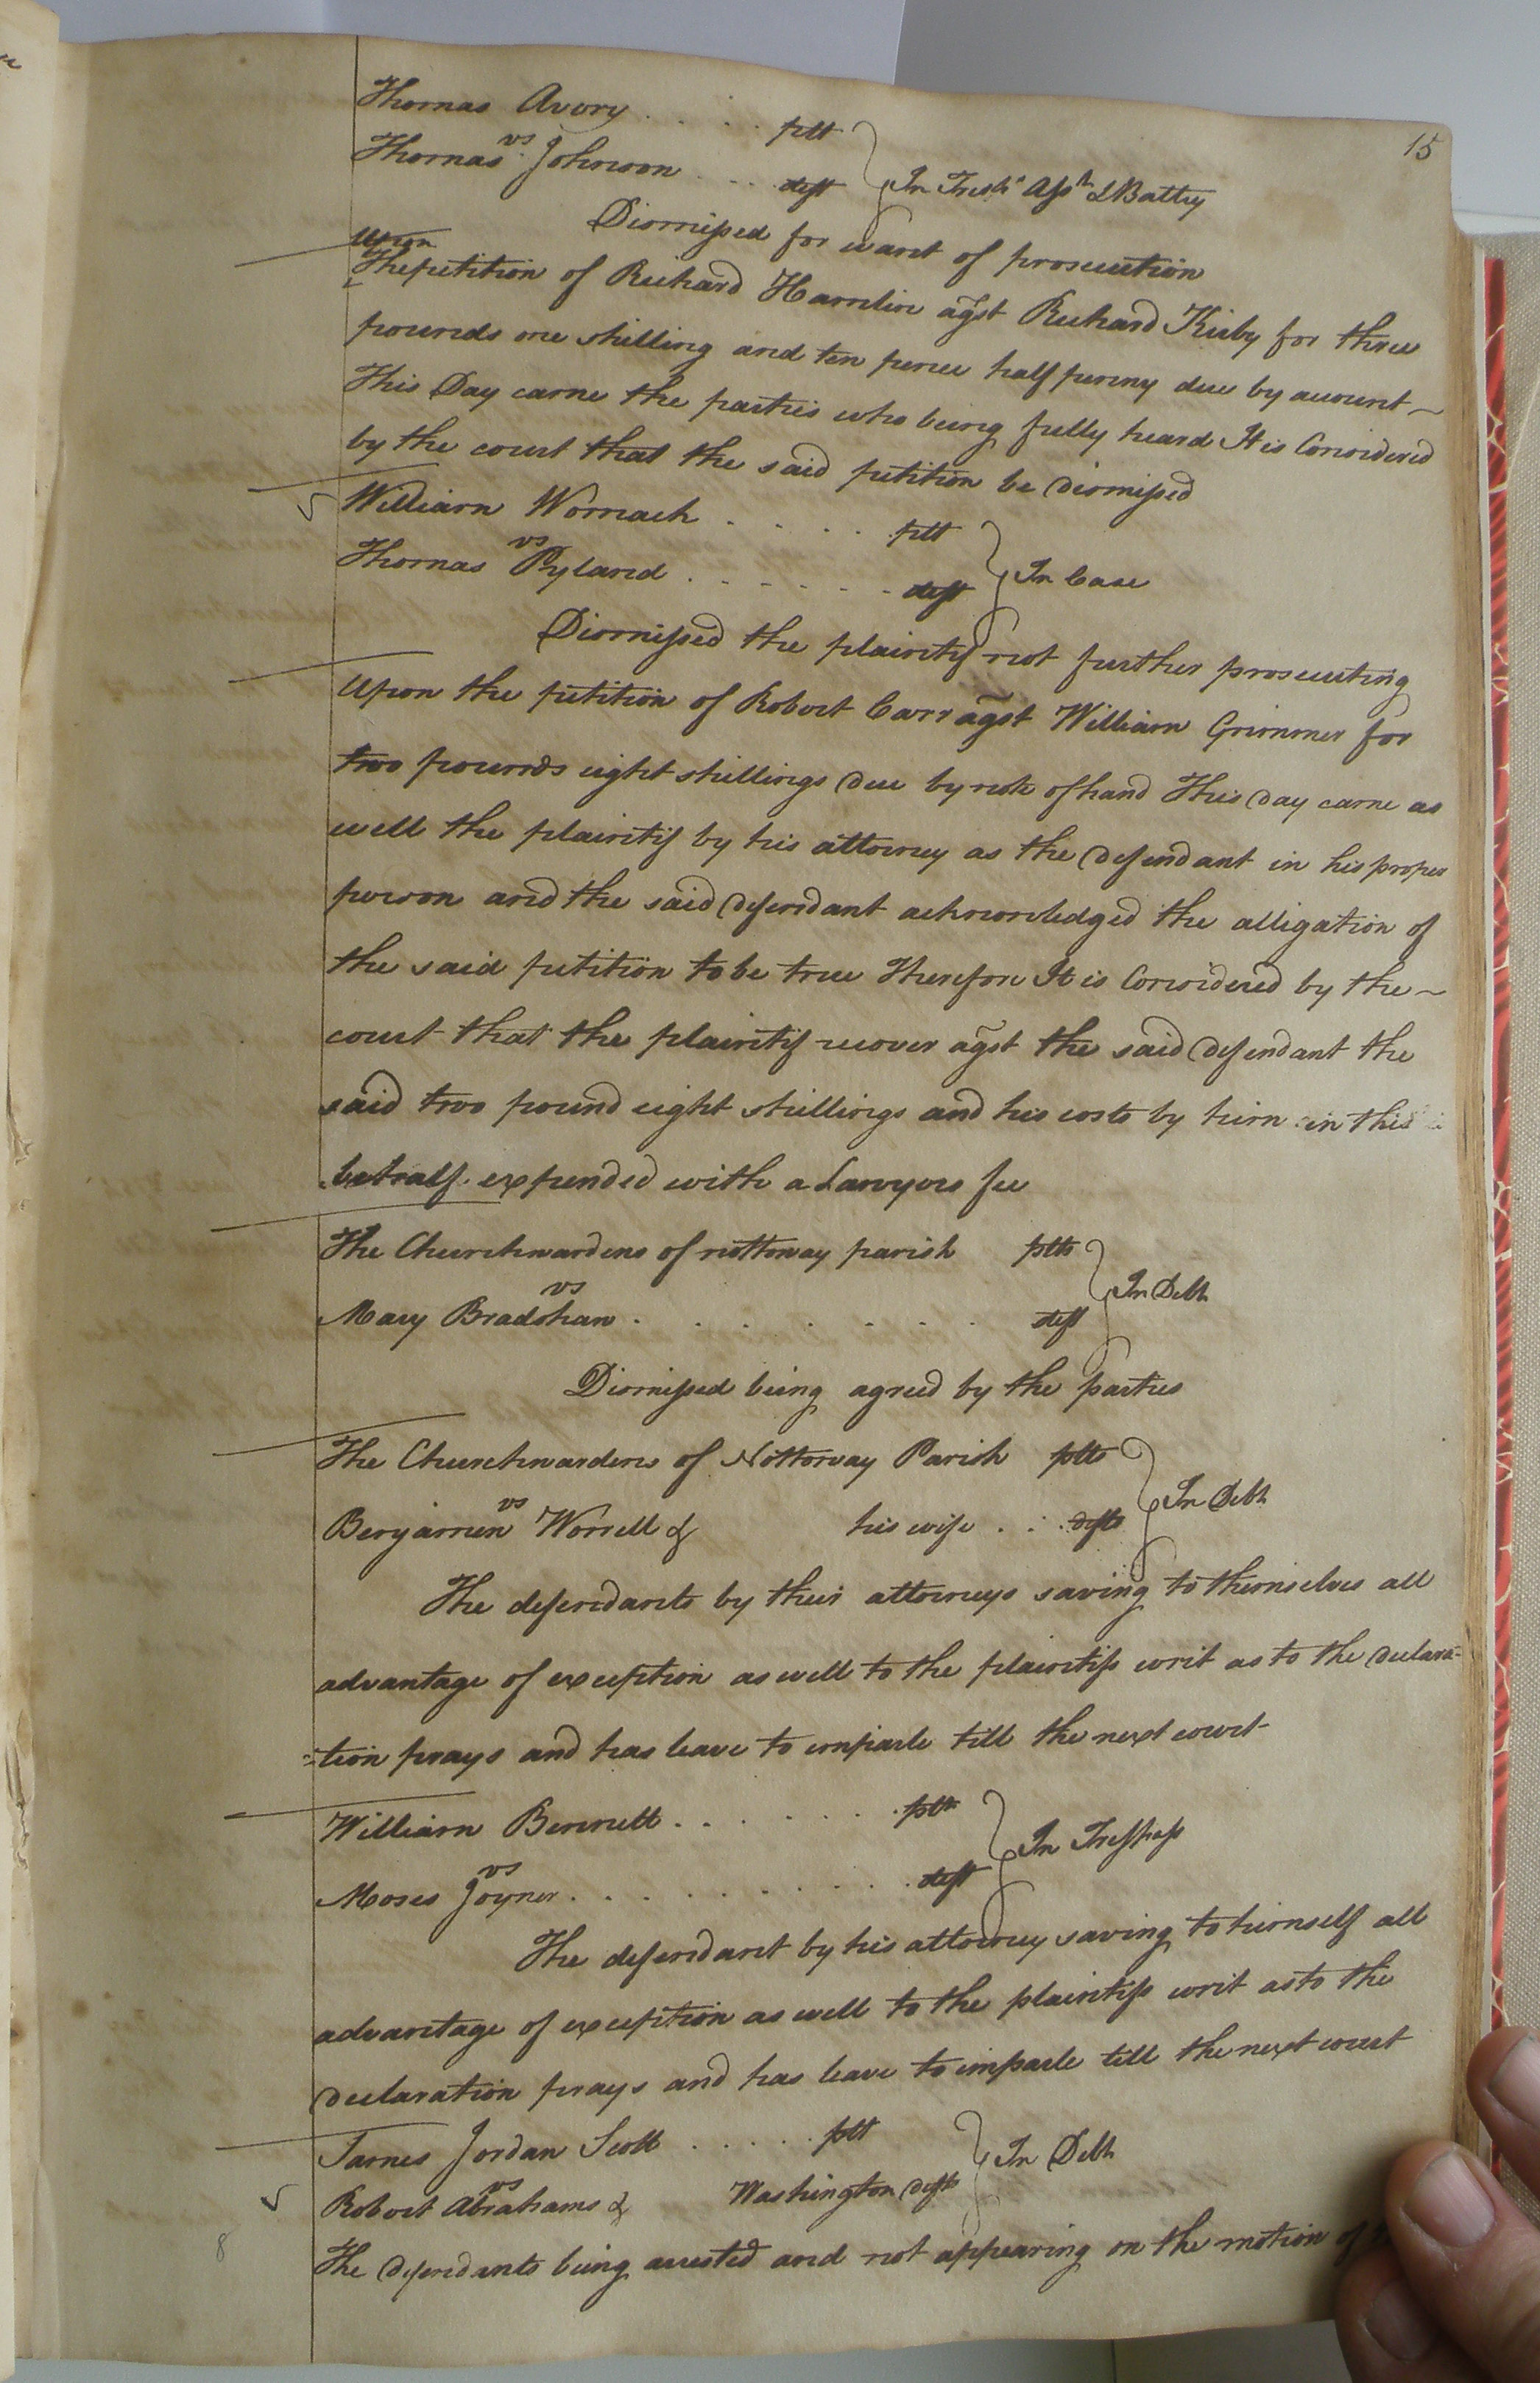 15
Thomas Avory . . . . pltt
vs
Thomas Johnson . . . deft In Tresps Asst & Battry
Dismissed for want of prosecution
Upon
The petition of Richard Hamlin agst Richard Kirby for three
pounds one shilling and ten pence half penny due by account ~
This Day came the parties who being fully heard It is Considered
by the court that the said petition be dismissed
William Womack . . . . . pltt
vs
Thomas Ryland . . . . . . . deft In Case
Dismissed the plaintif not further prosecuting
Upon the petition of Robert Carr agst William Grimmer for
two pounds eight shillings due by note of hand This day came as
well the plaintif by his attorney as the defendant in his proper
person and the said defendant acknowledged the alligation of
the said petition to be true Therefore It is Considered by the ~
court that the plaintif recover agst the said defendant the
said two pound eight shillings and his costs by him in this
behalf expended with a Lawyers fee
The Churchwardens of nottoway parish pltts
vs
Mary Bradshaw . . . . . . . deft In Debt
Dismissed being agreed by the parties
The Churchwardens of Nottoway Parish pltts
vs
Benjamin Worrell & his wife . . . defts In Debt
The defendants by their attorneys saving to themselves all
advantage of exception as well to the plaintifs writ as to the declara=
=tion prays and has leave to imparle till the next court
William Bennett . . . . . . pltt
vs
Moses Joyner . . . . . . . . . deft In Trespass
The defendant by his attorney saving to himself all
advantage of exception as well to the plaintifs writ as to the
declaration prays and has leave to imparle till the next court
James Jordan Scott . . . . . pltt
vs
Robert Abrahams & Washington defts In Debt
8
The defendants being arrested and not appearing on the motion of